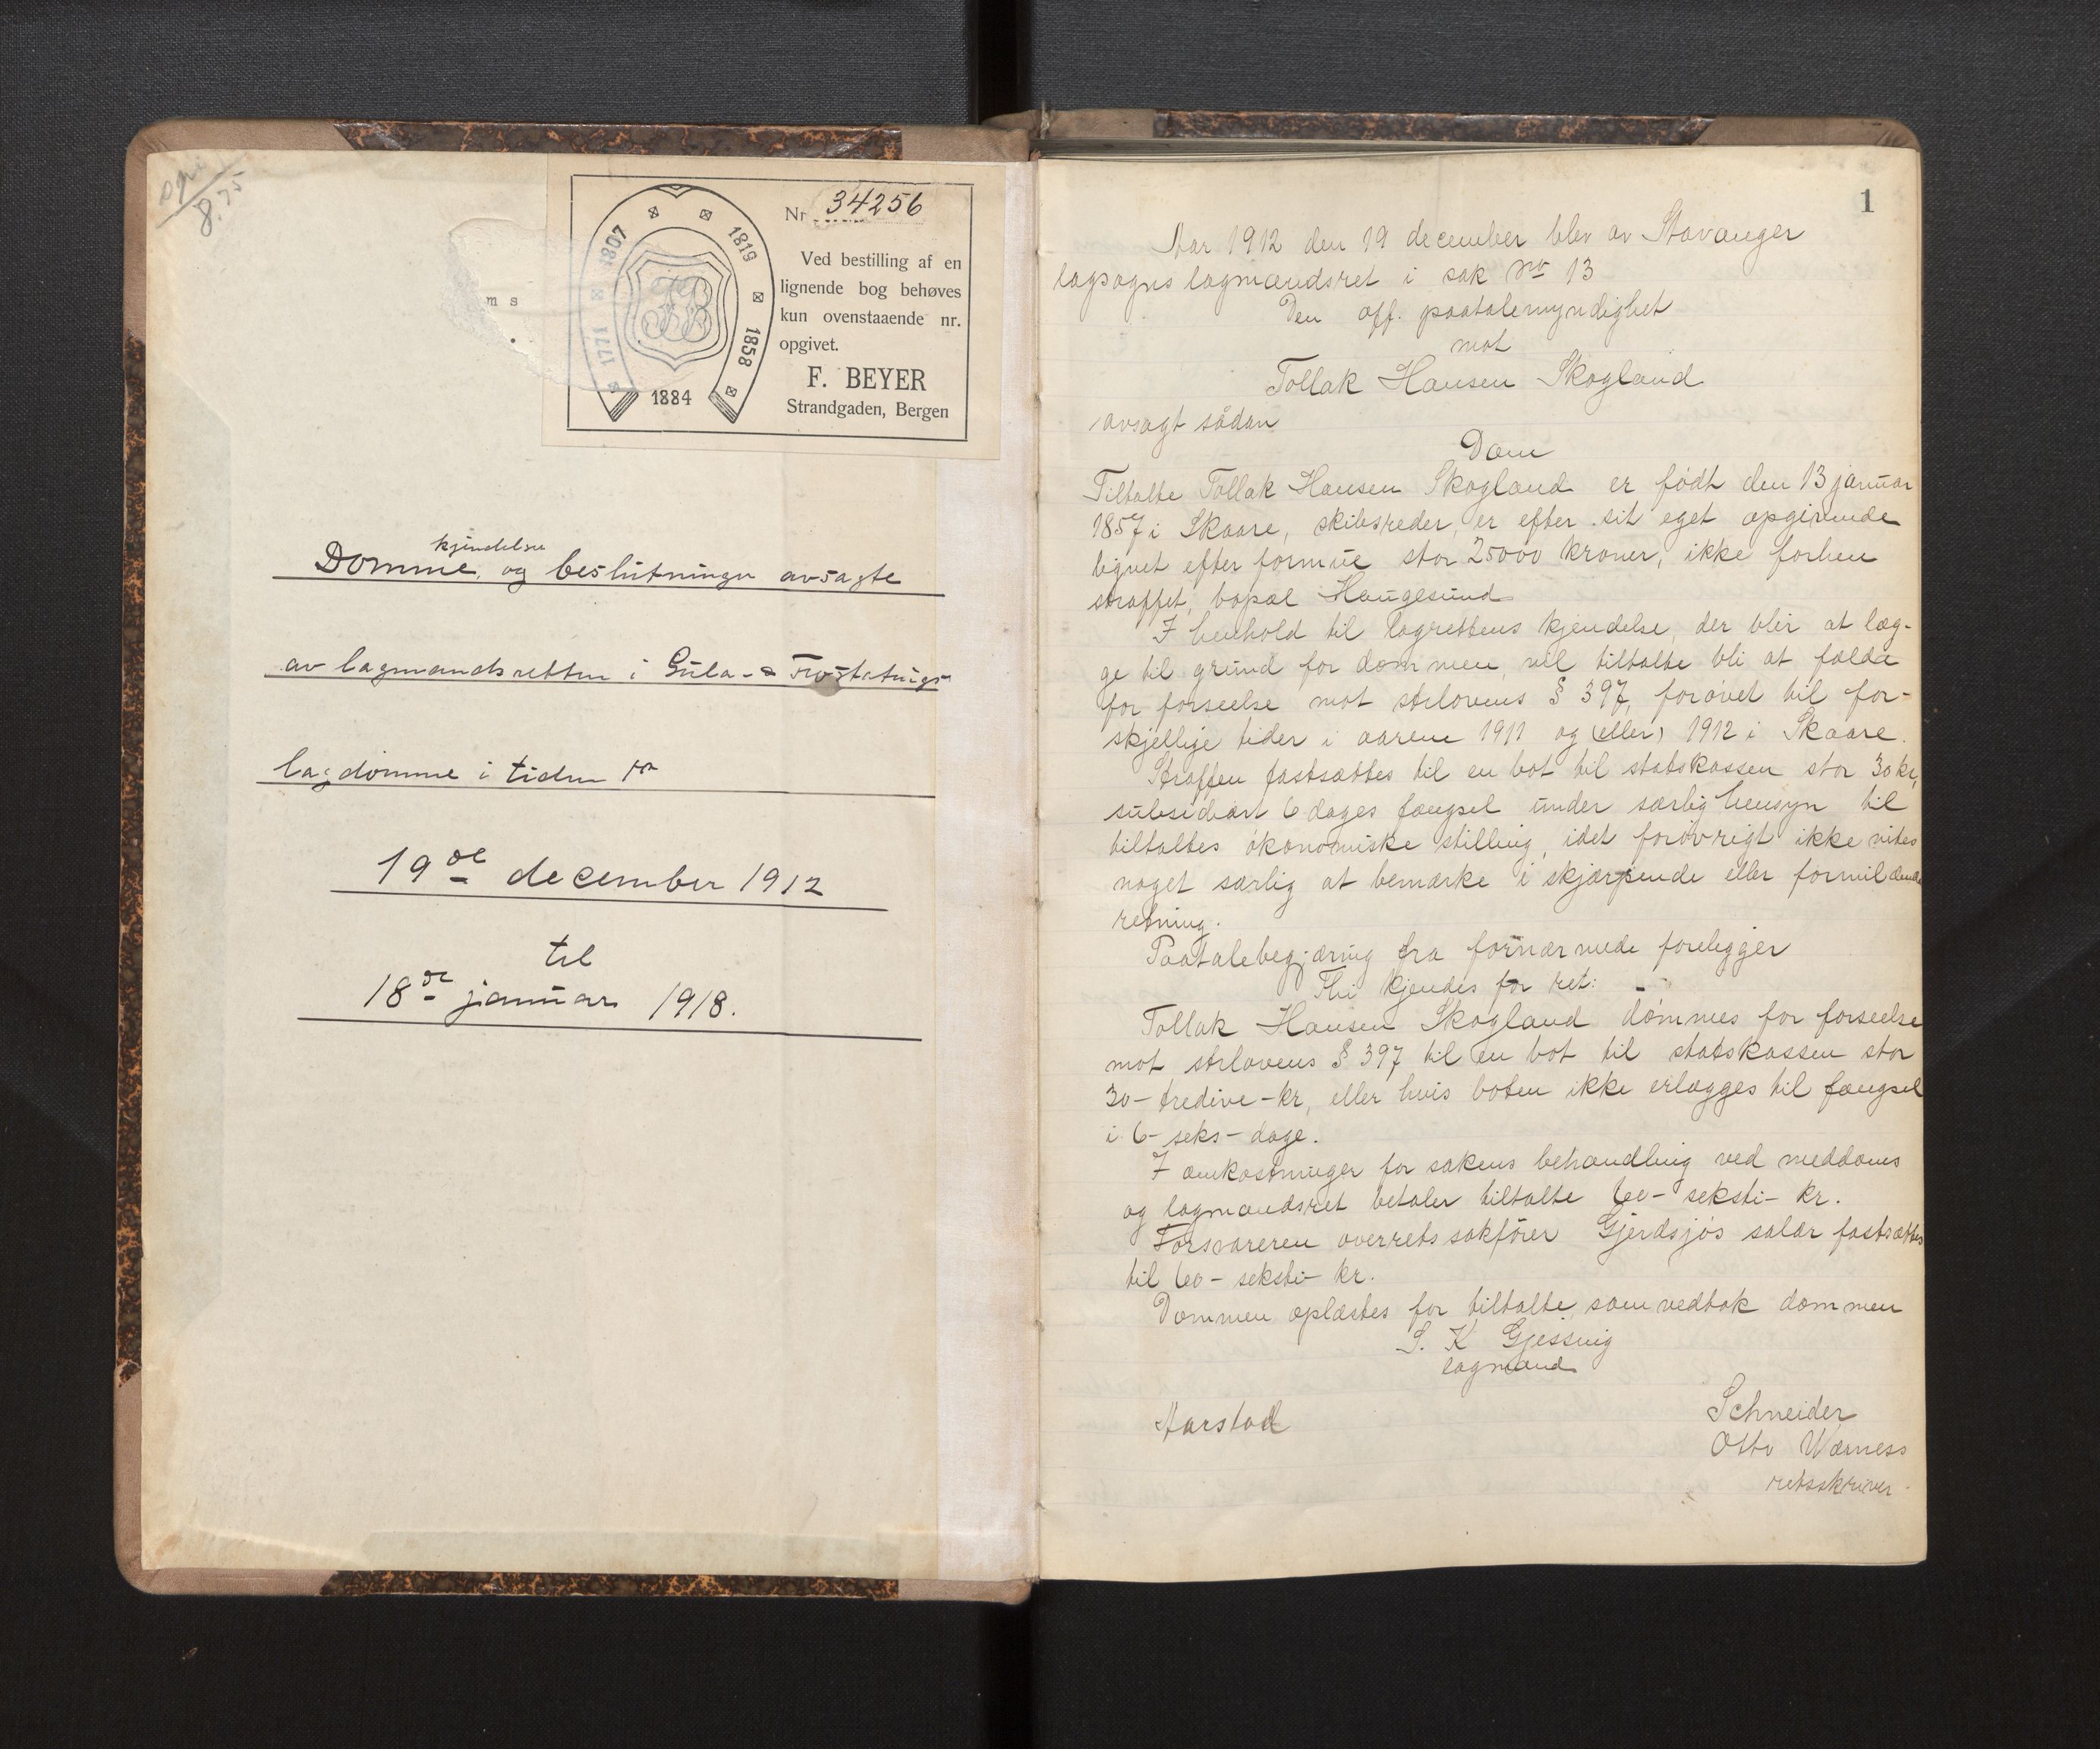 8.75
Nr 34256
1771 1807 1819 1858 1884
FB
Ved bestilling af en
lignende bog behøves
kun ovenstaaende nr.
opgivet.
F. BEYER
Strandgaden, Bergen
m s
kjendelser
Domme, og beslutninger avsagte
av lagmandsretten i Gula- & Frostatings
lagdømme i tiden fra
19de december 1912
til
18de januar 1918.
1
Aar 1912 den 19 december blev av Stavanger
lagsogns lagmandsret i sak No 13
Den off. paatalemyndighet
mot
Tollak Hansen Skogland
avsagt sådan
Dom
Tiltalte Tollak Hansen Skogland er født den 13 januar
1857 i Skaare, skibsreder, er efter sit eget opgivende
lignet efter formue stor 25000 kroner, ikke forhen
straffet, bopæl Haugesund
I henhold til lagrettens kjendelse, der blir at læg-
ge til grund for dommen, vil tiltalte bli at fælde
for forseelse mot strlovens § 397, forøvet til for-
skjellige tider i aarene 1911 og (eller) 1912 i Skaare.
Straffen fastsættes til en bot til statskassen stor 30 kr,
subsidiært 6 dages fængsel under særlig hensyn til
tiltaltes økonomiske stilling, idet forøvrigt ikke vites
noget særlig at bemærke i skjærpende eller formildende
retning.
Paatalebegjæring fra fornærmede foreligger
Thi kjendes for ret:
Tollak Hansen Skogland dømmes for forseelse
mot strlovens § 397 til en bot til statskassen stor
30 - tredive - kr, eller hvis boten ikke erlægges til fængsel
i 6 - seks - dage.
I omkostninger for sakens behandling ved meddoms
og lagmandsret betaler tiltalte 60 - seksti - kr.
Forsvareren overretssakfører Gjerdsjøs salær fastsættes
til 60 - seksti - kr.
Dommen oplæstes for tiltalte, som vedtok dommen
S. K Gjessing
lagmand
Aarstad
Schneider
Otto Wærness
retsskriver